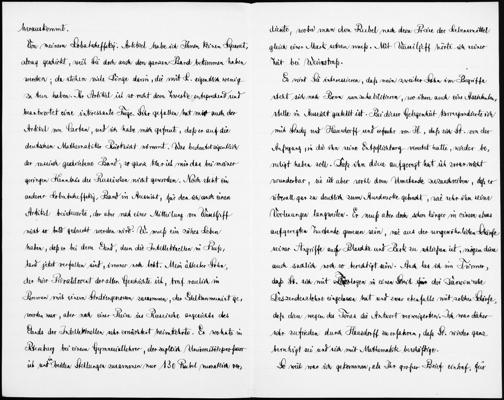 herauskommt.
Von meinem Lobatscheffskij-Artikel habe ich Ihnen keinen Separat-
abzug geschickt, weil Sie doch auch den ganzen Band bekommen haben
werden; da stehen viele Dinge darin, die mit L. eigentlich wenig
zu tun haben. Ihr Artikel ist so recht dem Zwecke entsprechend und
beantwortet eine interessante Frage. Sehr gefallen hat mir auch der
Artikel von Cartan, und ich habe mich gefreut, dass er auf die
deutschen Mathematiker Rücksicht nimmt. Was bedeutet eigentlich
der russisch geschriebene Band; so ganz klar ist mir das bei meiner
geringen Kenntnis des Russischen nicht geworden. Noch steht ein
anderer Lobatscheffskij Band in Aussicht, für den ich auch einen
Artikel beisteuerte, der aber nach einer Mitteilung von Wassilieff
nicht so bald gedruckt werden wird. Es muss ein zähes Leben
haben, dass er bei dem Elend, dem die Intellektuellen in Russ-
land jetzt verfallen sind, immer noch lebt. Mein ältester Sohn,
der hier Privatdozent der alten Geschichte ist, traf neulich in
Bonn mit einem Studiengenossen zusammen, der Stadtkommunist ge-
worden war, aber nach einer Reise ins Russische angesichts des
Elends der Intellektuellen sehr ernüchtert heimkehrte. Er wohnte in
Petersburg bei einem Gymnasiallehrer, der zugleich Universitätsprofessor
ist und beiden Stellungen zusammen nur 130 Rubel monatlich ver-
diente, wobei man den Rubel nach dem Preise der Lebensmittel
gleich einer Mark setzen muss. Mit Wassilieff hörte ich seiner
Zeit bei Weierstrass.
Es wird Sie interessieren, dass mein zweiter Sohn im Begriffe
steht sich nach Bonn umzuhabilitieren, wo ihm auch eine Assistenten-
stelle in Aussicht gestellt ist. Bei dieser Gelegenheit korrespondierte ich
mit Study und Hausdorff und erfuhr von H., dass sich St. von der
Aufregung in die ihn seine Entpflichtung versetzt hatte, wieder be-
ruhigt haben soll. Dass ihm diese aufgeregt hat ist zwar nicht
wunderbar, sie ist aber wohl dem Umstande zuzuschreiben, dass er
überall gar zu deutlich zum Ausdrucke gebracht, wie sehr ihn seine
Vorlesungen langweilen. Er muss aber doch schon länger in einem etwas
aufgeregten Zustande gewesen sein, wie aus der ungewöhnlichen Schärfe
seiner Angriffe auf Blaschke und Beck zu schliessen ist, mögen diese
auch sachlich noch so berechtigt sein. Auch las ich im Türmer,
dass St. sich mit Theologen in einen Streit für die Darwinsche
Deszendenzlehre eingelassen hat und zwar ebenfalls mit solcher Schärfe,
dass dem wegen der Form die Antwort verweigerten. Ich war daher
sehr zufrieden durch Hausdorff zu erfahren, dass St. wieder ganz
beruhigt sei und sich mit Mathematik beschäftige.
So weit war ich gekommen, als Ihr grosser Brief eintraf, für